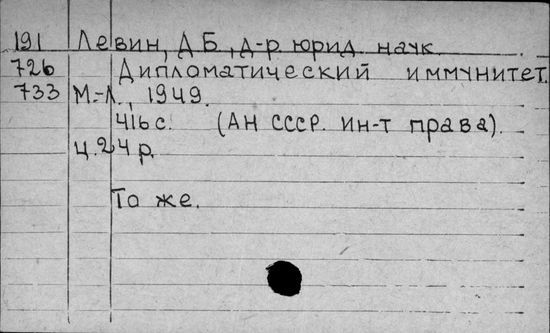 191 Левин, Д Б, д-р юрид. наук
726 Дипломатический иммунитет.
733 М.-Л., 1949.
416 с. (АН СССР. ин-т права).
ц. 24 р.
То же.